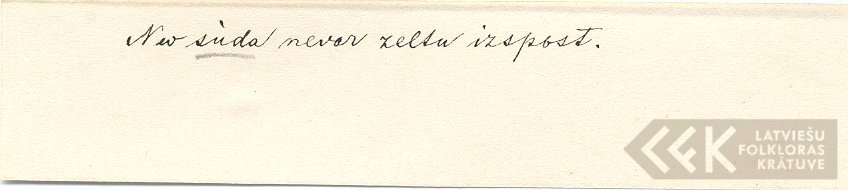 New sùda nevar zeltu izspost.
LATVIEŠU
FOLKLORAS
KRĀTUVE